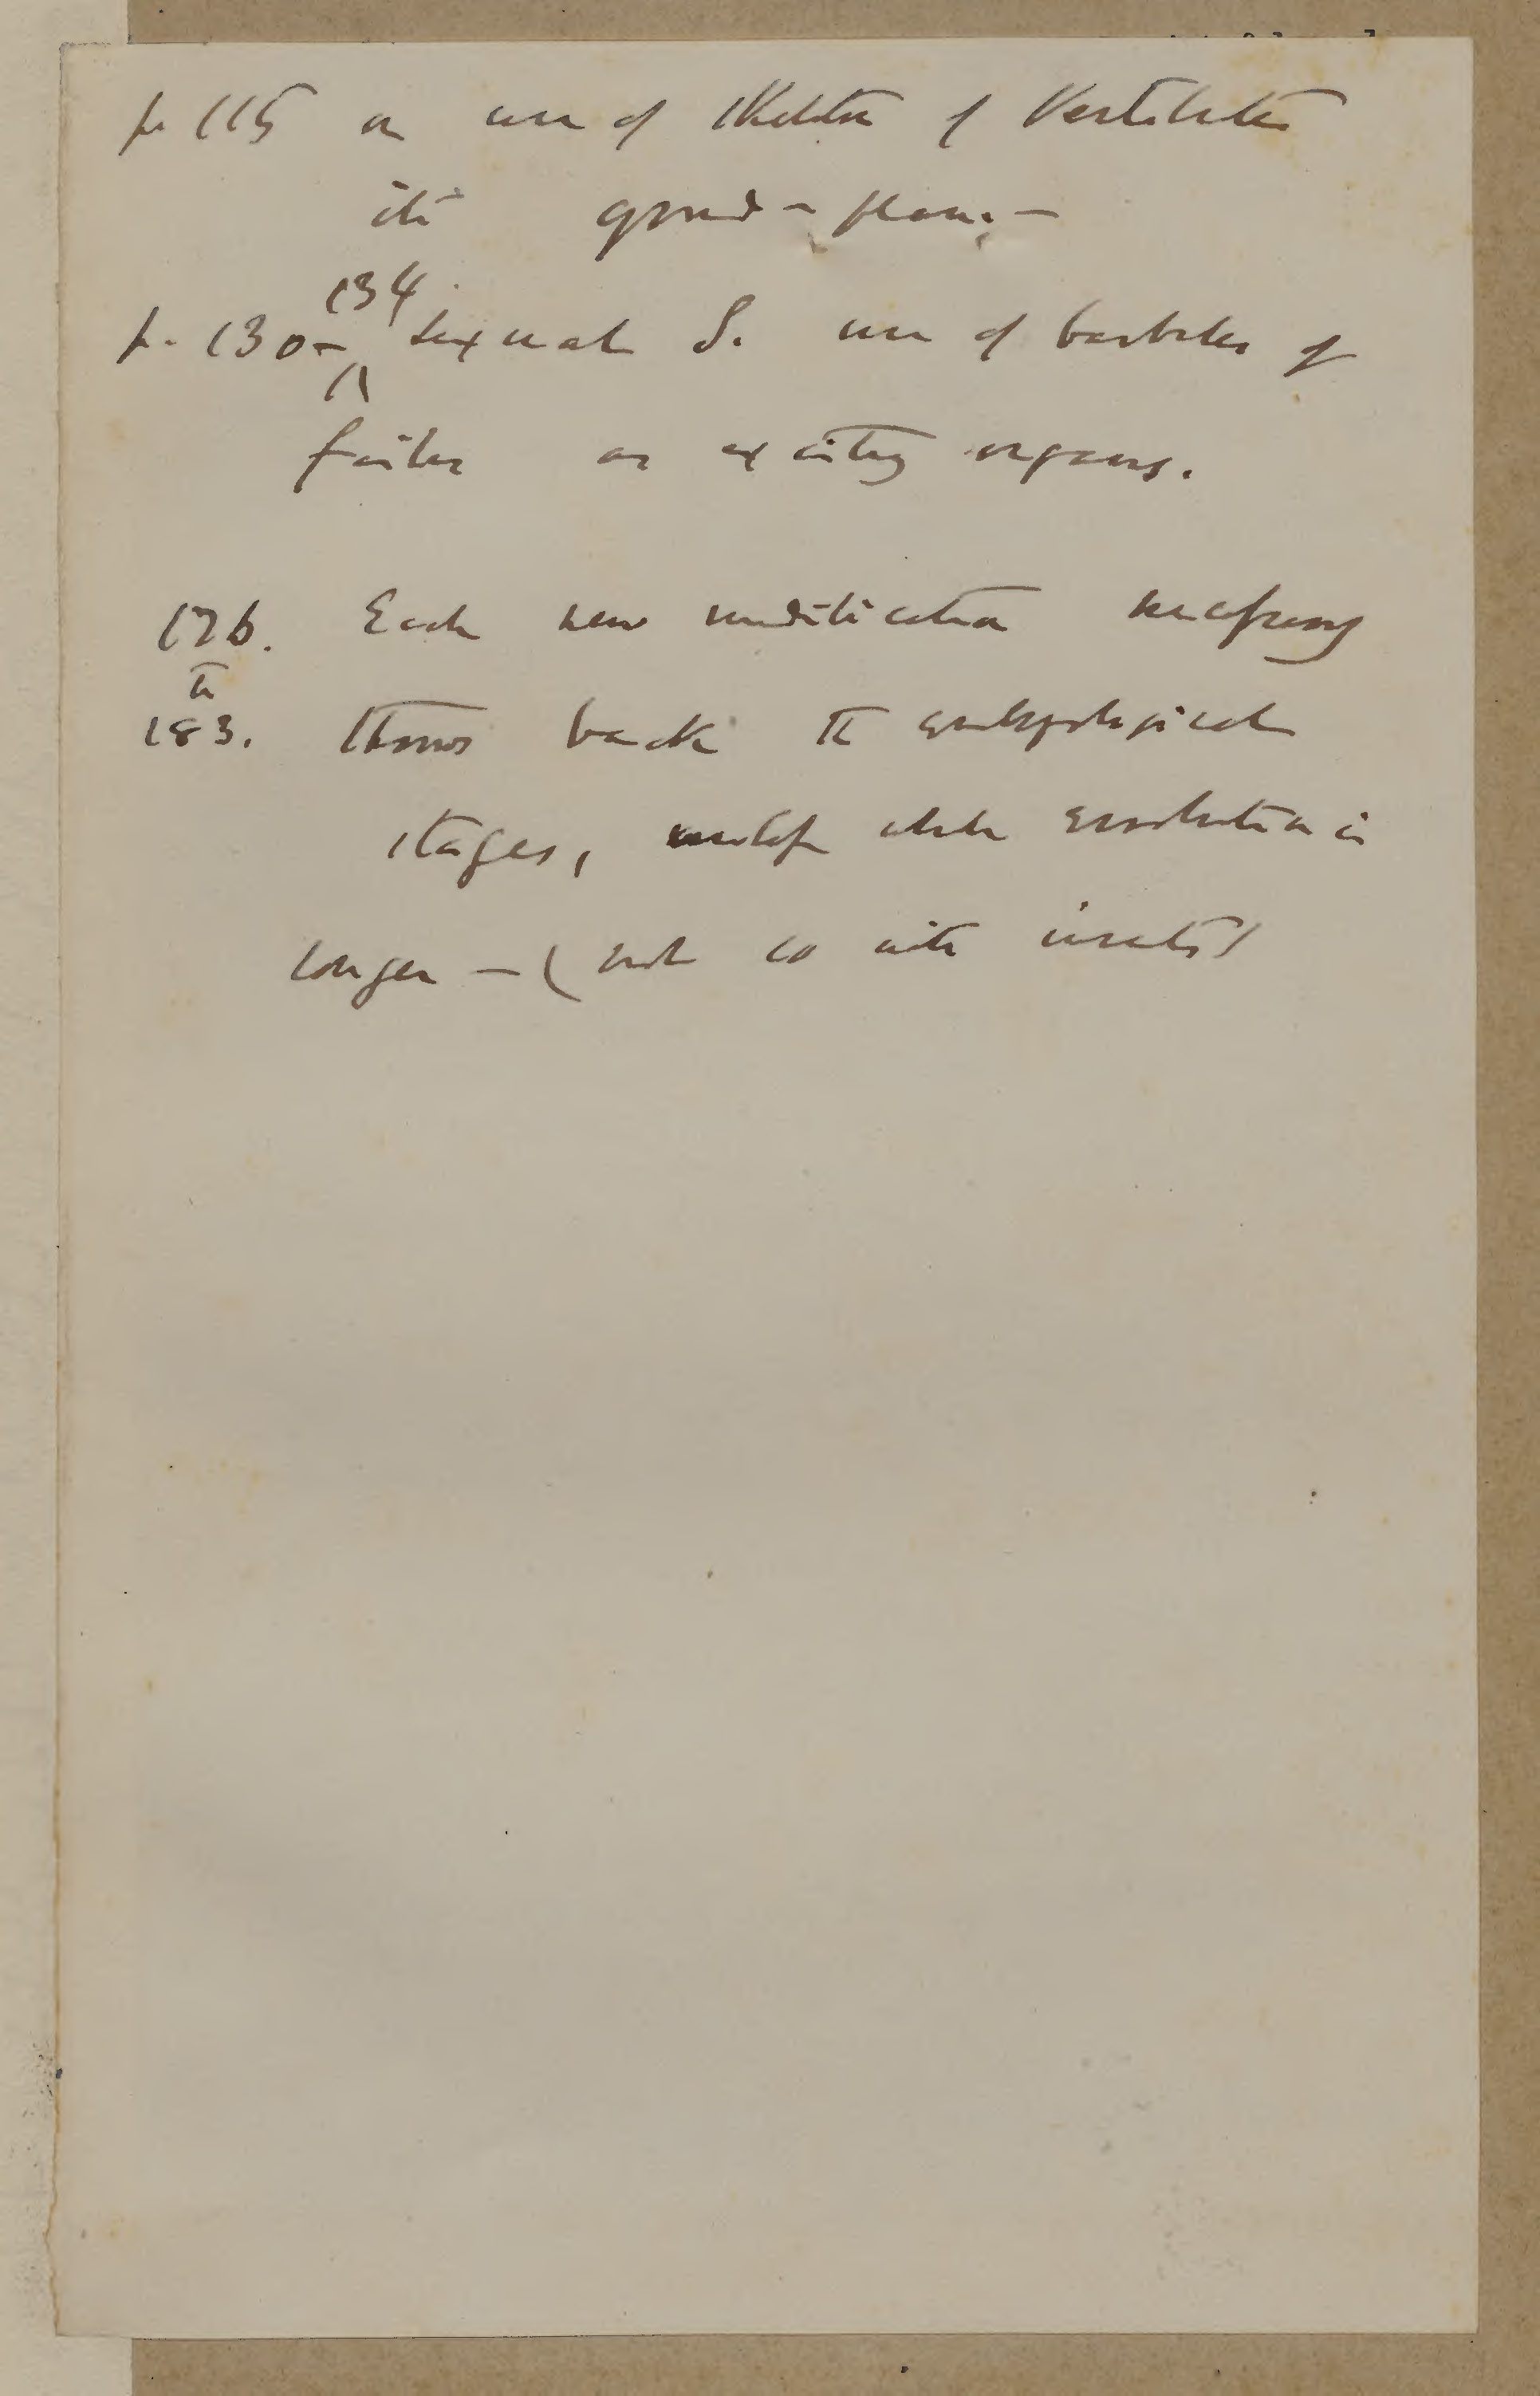 p 115 on use of skeleton of Vertebrata
its ground-plan; —
134
p. 130- sexual S. use of barbules of
as exciting organs.
176. Each new modification necessary
to
183. throws back the embryological
stages, while evolution is
longer — (not so with insects)